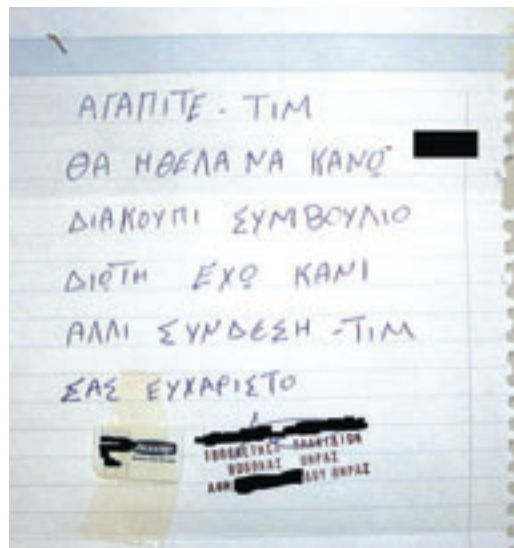 ΑΓΑΠΙΤΕ - ΤΙΜ
ΘΑ ΗΘΕΛΑ ΝΑ ΚΑΝΩ
ΔΙΑΚΟΥΠΙ ΣΥΜΒΟΥΛΙΟ
ΔΙΩΤΗ ΕΧΩ ΚΑΝΙ
ΑΛΛΙ ΣΥΝΔΕΣΗ - ΤΙΜ
ΣΑΣ ΕΥΧΑΡΙΣΤΟ